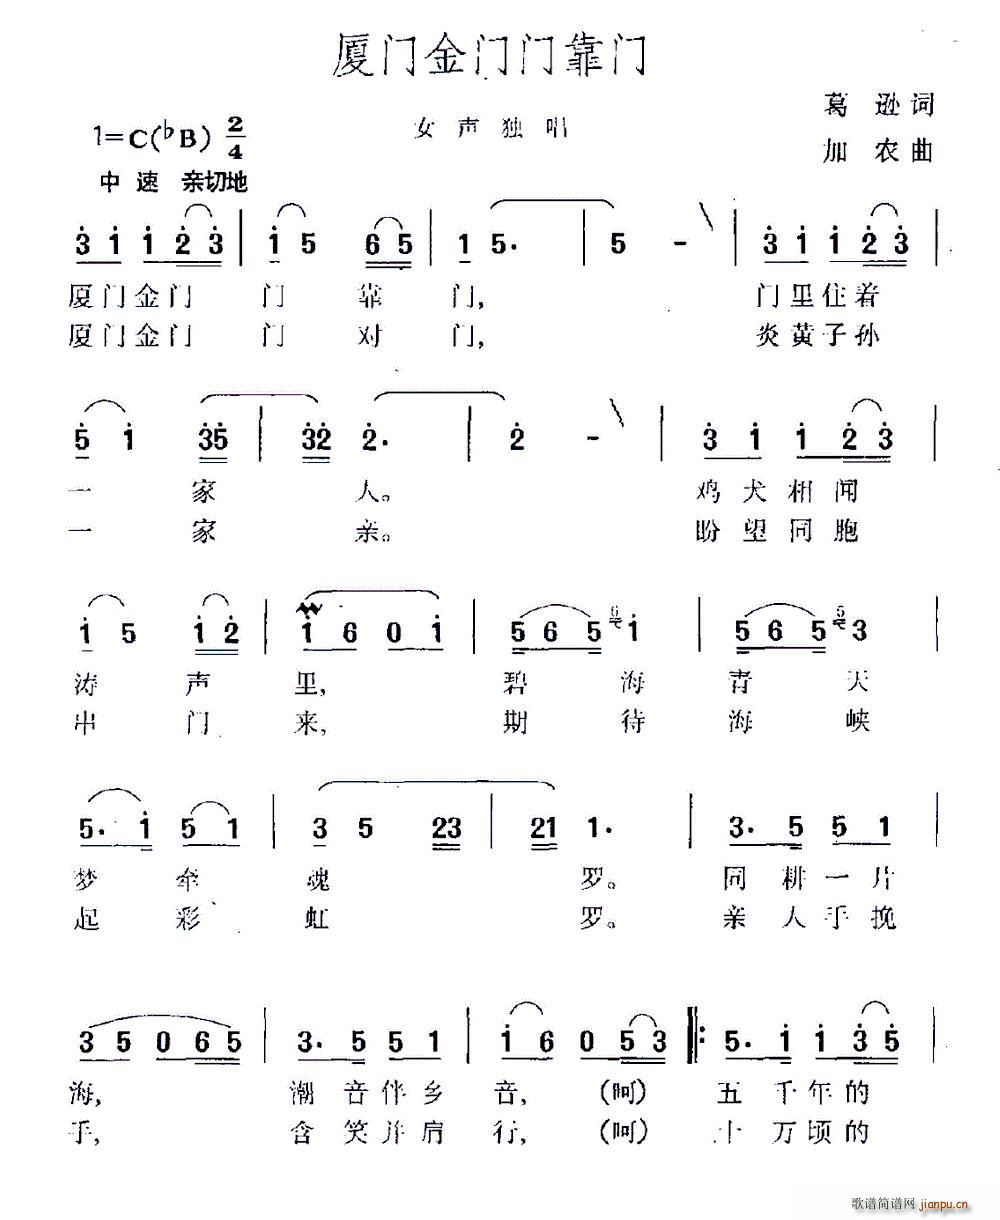 厦门金门门靠门
葛逊词
1=C(♭B) 2/4 女声独唱
加农曲
中速 亲切地
3 1 1 2 3 | 1 5 6 5 | 1 5. | 5 - | 3 1 1 2 3 |
厦门金门门靠门, 门里住着
厦门金门门对门, 炎黄子孙
5 1 35 | 32 2. | 2 - | 3 1 1 2 3 |
一家人。 鸡犬相闻
一家亲。 盼望同胞
1 5 1 2 | 1 6 0 1 | 5 6 5 6 1 | 5 6 5 5 3
涛声里, 碧海青天
串门来, 期待海峡
5. 1 5 1 | 3 5 23 | 21 1. | 3. 5 5 1 |
梦牵魂罗。 同耕一片
起彩虹罗。 亲人手挽
3 5 0 6 5 | 3. 5 5 1 | 1 6 0 5 3 |: 5. 1 1 3 5 |
海, 潮音伴乡音, (呵) 五千年的
手, 含笑并肩行, (呵) 十万顷的
歌谱简谱网 jianpu.cn